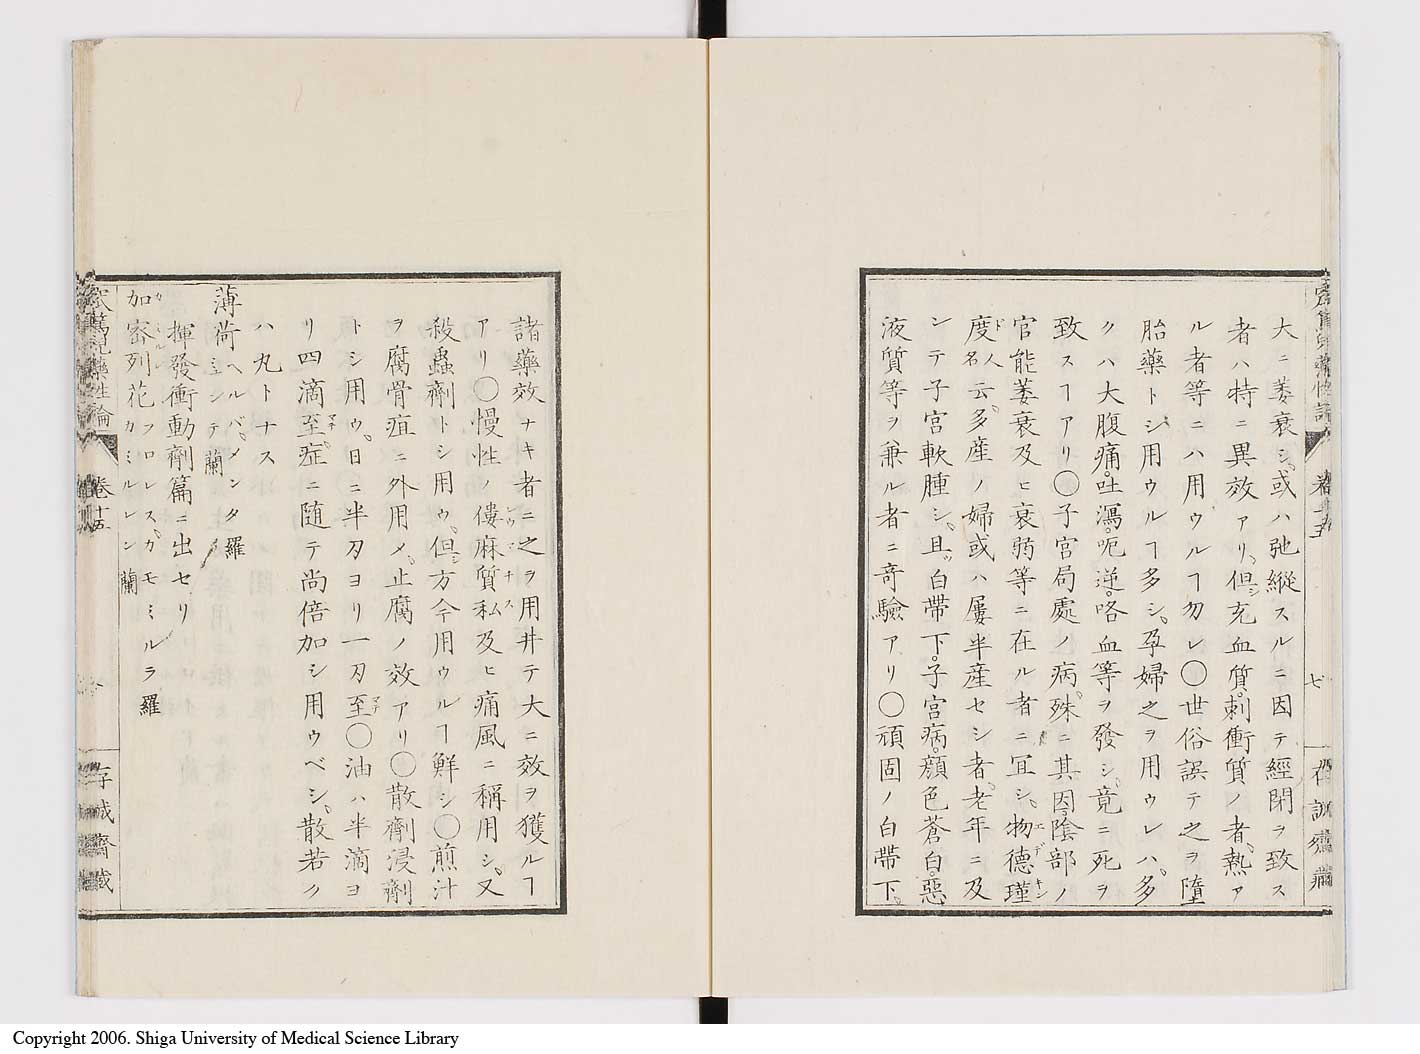 大ニ萎衰シ、或ハ弛縦スルニ因テ經閉ヲ致ス
者ハ特ニ異效アリ、但シ充血質。刺衝質ノ者、熱ア
ル者等ニハ用ウルヿ勿レ〇世俗誤テ之ヲ墮
胎藥トシ用ウルヿ多シ、孕婦之ヲ用ウレハ、多
クハ大腹痛。吐瀉。呃逆。咯血等ヲ發シ、竟ニ死ヲ
致スヿアリ〇子宮局處ノ病、殊ニ其因。陰部ノ
官能萎衰及ヒ衰弱等ニ在ル者ニ冝シ、物德瑾エデキン
度ド人名云、多産ノ婦或ハ屢半産セシ者、老年ニ及
ンテ子宮軟腫シ、且ツ白帶下。子宮病。顔色蒼白。惡
液質等ヲ兼ル者ニ竒驗アリ〇頑固ノ白帶下。
七
諸藥效ナキ者ニ之ヲ用井テ大ニ效ヲ獲ルヿ
アリ〇慢性ノ僂麻質私及ヒ痛風ニ稱用シ、又
殺蟲劑トシ用ウ、但シ方今用ウルヿ鮮シ〇煎汁
ヲ腐骨疽ニ外用メ、止腐ノ效アリ〇散劑浸劑
トシ用ウ、日ニ半刄ヨリ一刄至マデ〇油ハ半滴ヨ
リ四滴至マデ、症ニ随テ尚倍加シ用ウベシ、散若ク
ハ丸トナス
薄荷 ヘルバ、メンタ羅 ミュンテ蘭
揮發衝動劑篇ニ出セリ
加密列花 フロレス、カモミルラ羅 カミルレン蘭
窊篤兒藥性論 卷十五
存誠齋藏